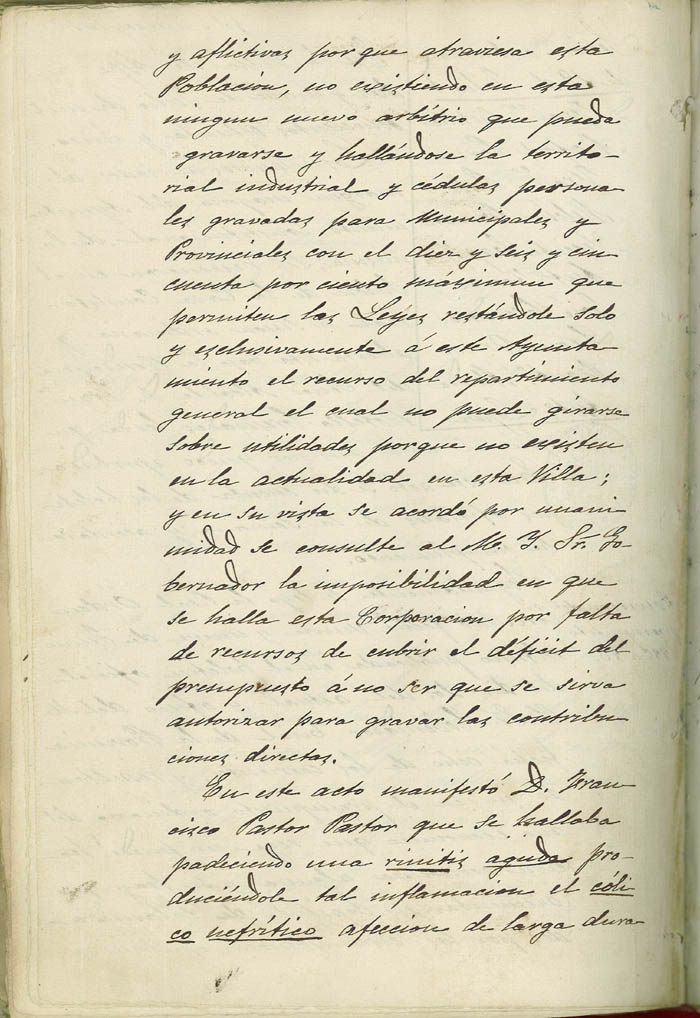 y aflictivas por que atraviesa esta
Poblacion, no existiendo en esta
ningun nuevo arbitrio que pueda
gravarse y hallándose la territo-
rial industrial y cédulas persona
les gravadas para Municipales y
Provinciales con el diez y seis y cin
cuenta por ciento máximun que
permiten las Leyes restándole solo
y esclusivamente á este Ayunta
miento el recurso del repartimiento
general el cual no puede girarse
sobre utilidades porque no existen
en la actualidad en esta Villa;
y en su vista se acordó por unani
midad se consulte al M. Y. Sr. Go-
bernador la imposibilidad en que
se halla esta Corporacion por falta
de recursos de cubrir el déficit del
presupuesto á no ser que se sirva
autorizar para gravar las contribu
ciones directas.
En este acto manifestó D. Fran
cisco Pastor Pastor que se hallaba
padeciendo una rinitis aguda pro-
duciéndole tal inflamacion el cóli
co nefrítico afeccion de larga dura-